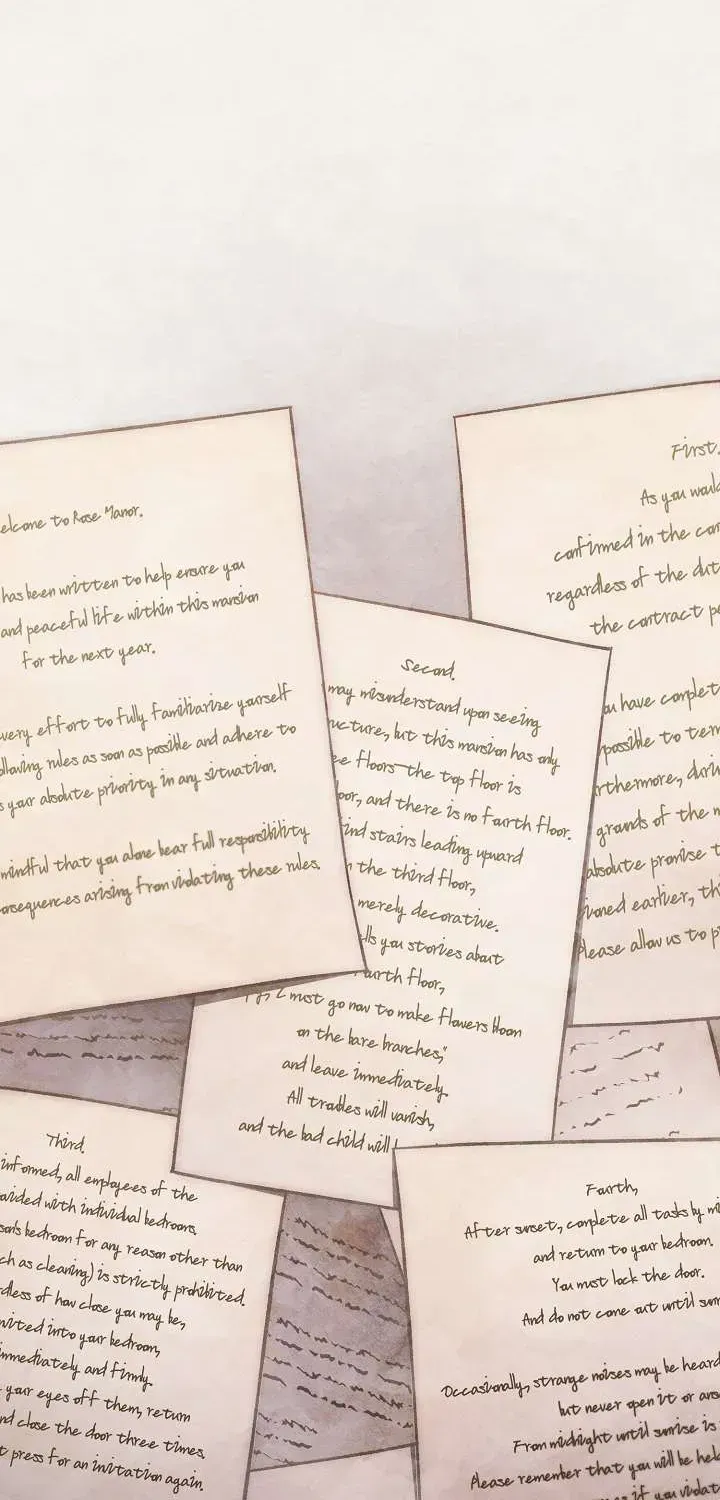 elcome to Rose Manor.
has been written to help ensure you
and peaceful life within this mansion
for the next year.
very effort to fully familiarize yourself
llowing rules as soon as possible and adhere to
s your absolute priority in any situation.
mindful that you alone bear full responsibility
onsequences arising from violating these rules.
First.
As you would
confirmed in the con
regardless of the dut
the contract pe
ou have complet
possible to term
rthermore, durin
grounds of the m
absolute promise t
ioned earlier, thi
Please allow us to p
Second.
may misunderstand upon seeing
ucture, but this mansion has only
ee floors—the top floor is
oor, and there is no fourth floor.
find stairs leading upward
the third floor,
merely decorative.
lls you stories about
ourth floor,
I must go now to make flowers bloom
on the bare branches,"
and leave immediately.
All troubles will vanish,
and the bad child will
Third.
informed, all employees of the
ovided with individual bedrooms.
son's bedroom for any reason other than
ch as cleaning) is strictly prohibited.
dless of how close you may be,
nvited into your bedroom,
immediately and firmly.
your eyes off them, return
nd close the door three times.
t press for an invitation again.
Fourth,
After sunset, complete all tasks by mi
and return to your bedroom.
You must lock the door.
And do not come out until sunr
Occasionally, strange noises may be heard
but never open it or ans
From midnight until sunrise is
Please remember that you will be hel
if you violat